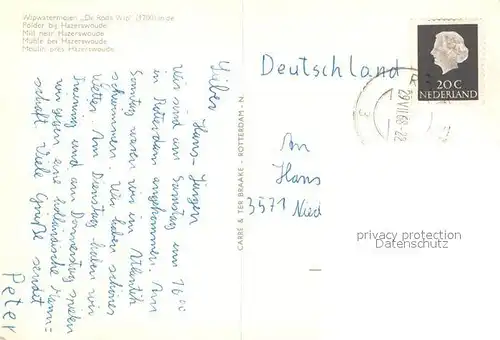 Wipwatermolen „De Rode Wip" (1700) in de
Polder bij Hazerswoude
Mill near Hazerswoude
Mühle bei Hazerswoude
Moulin près Hazerswoude
Lieber Hans-Jürgen
Wir sind am Samstag um 16 00
in Rotterdam angekommen. Am
Sonntag waren wir im Atlantik
schwimmen. Wir haben schönes
Wetter. Am Dienstag haben wir
Training und am Donnerstag spielen
wir gegen eine holländische Mann=
schaft Viele Grüße sendet
Peter
CARRÉ & TER BRAAKE - ROTTERDAM - N.
Deutschland
20 C
NEDERLAND
An
Hans
3571 Nied
privacy protection
Datenschutz